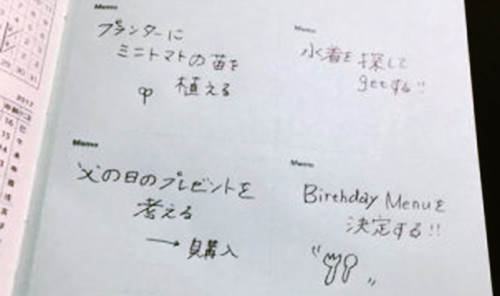 Memo
プランターに
ミニトマトの苗を
植える
Memo
水着を探して
getする!!
Memo
父の日のプレゼントを
考える
→ 購入
Memo
Birthday Menuを
決定する!!
2017
29 30 31
16 巳
15 午
14 未